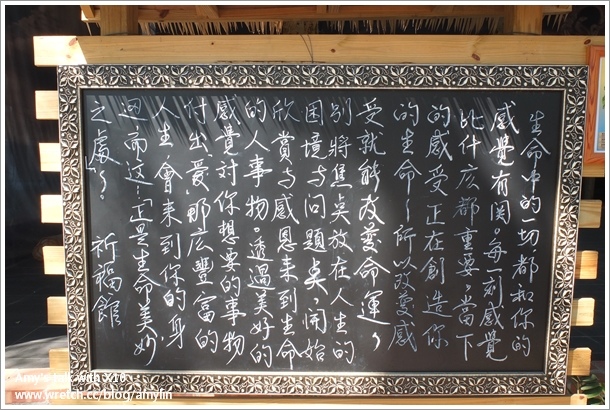 生命中的一切都和你的
感覺有関。每一刻感覺
比什庅都重要,當下
的感受正在創造你
的生命,所以改變感
受就能改變命運,
別將焦點放在人生的
困境与問題点,開始
欣賞与感恩來到生命
的人事物。透過美好的
感覺對你想要的事物
付出愛,那庅豐富的
人生,會來到你的身
邊,而這,正是生命美妙
之處。 祈福館
www.wretch.cc/blog/amylin